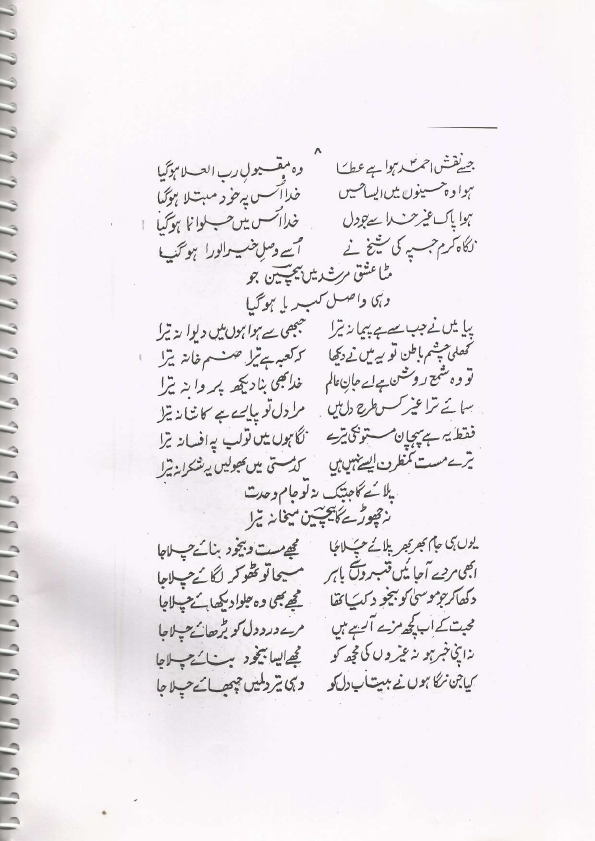 ۸
جسے نقش احمدؐ ہوا ہے عطا وہ مقبول رب العلا ہوگیا
ہوا وہ حسینوں میں ایسا حسیں خدا اُس پہ خود مبتلا ہوگیا
ہوا پاک غیر خدا سے جو دل خدا اُس میں جلوا نما ہوگیا
نگاہ کرم جسپہ کی شیخ نے اُسے وصلِ خیر الورا ہو گیا
مٹا عشق مرشد میں بیچین جو
وہی واصل کبریا ہوگیا
پیا میں نے جب سے ہے پیمانہ تیرا جبھی سے ہوا ہوں میں دیوانہ تیرا
کھلی چشم باطن تو یہ میں نے دیکھا کہ کعبہ ہے تیرا صنم خانہ تیرا
تو وہ شمع روشن ہے اے جانِ عالم خدا بھی بنا دیکھ پروانہ تیرا
سمائے ترا غیر کس طرح دل میں مرا دل تو پیارے ہے کاشانہ تیرا
فقط یہ ہے پہچان مستونکی تیرے نگاہوں میں تو لب پہ افسانہ تیرا
ترے مست کمظرف ایسے نہیں ہیں کہ مستی میں بھولیں یہ شکرانہ تیرا
پلائے گا جبتک نہ تو جام وحدت
نہ چھوڑے گا بیچین میخانہ تیرا
یوں ہی جام بھر بھر پلائے چلا جا مجھے مست و بیخود بنائے چلا جا
ابھی مردے آجائیں قبروں سے باہر مسیحا تو ٹھوکر لگائے چلا جا
دکھا کر جو موسیٰ کو بیخود کیا تھا مجھے بھی وہ جلوا دیکھائے چلا جا
محبت کے اب کچھ مزے آرہے ہیں مرے درد دل کو بڑھائے چلا جا
نہ اپنی خبر ہو نہ غیروں کی مجھ کو مجھے ایسا بیخود بنائے چلا جا
کیا جن نگاہوں نے بیتاب دل کو وہی تیر دلمیں چبھائے چلا جا